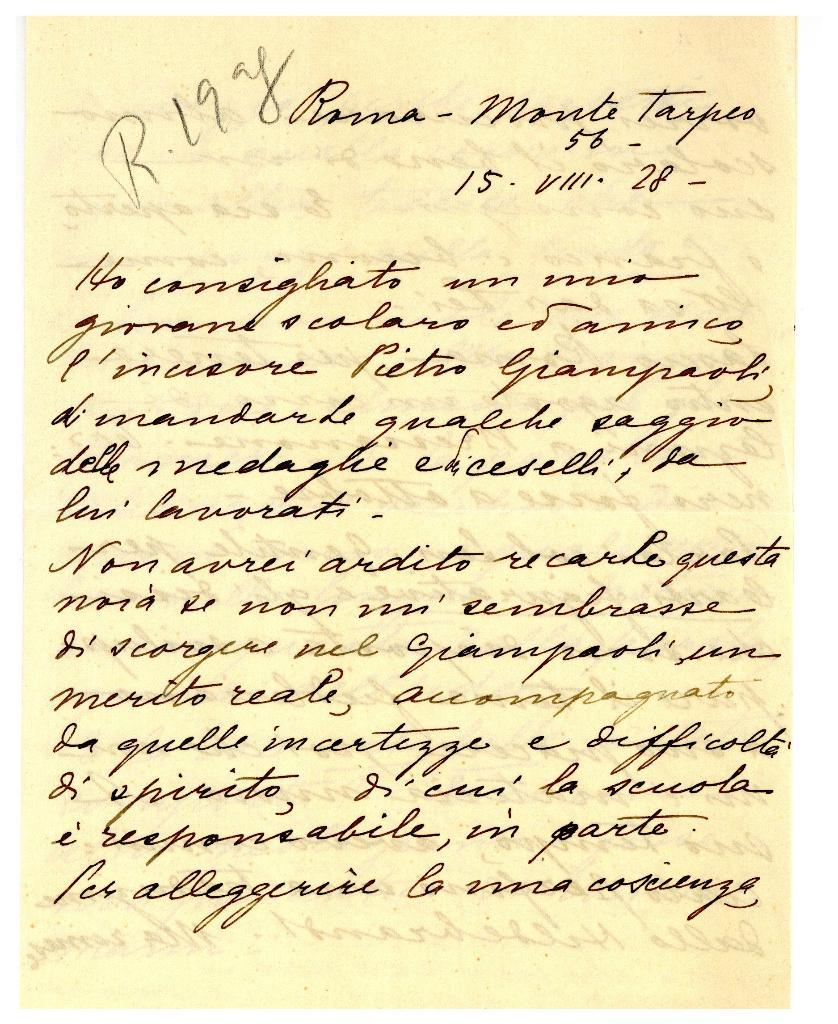 R. 19 ag
Roma - Monte Tarpeo
56 -
15. VIII. 28 -
Ho consigliato un mio
giovane scolaro ed amico,
l'incisore Pietro Giampaoli,
di mandarle qualche saggio
delle medaglie e di ceselli, da
lui lavorati -
Non avrei ardito recarle questa
noia se non mi sembrasse
di scorgere nel Giampaoli, un
merito reale, accompagnato
da quelle incertezze e difficoltà
di spirito, di cui la scuola
è responsabile, in parte.
Per alleggerire la mia coscienza,